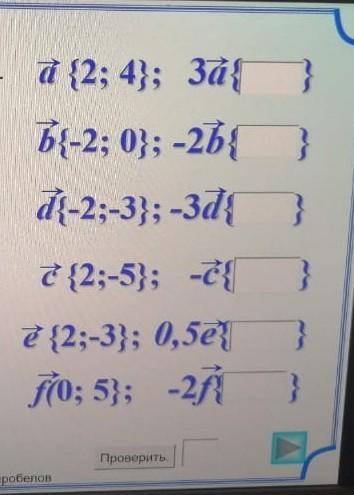 a⃗ {2; 4}; 3a⃗{ }
b⃗{-2; 0}; -2b⃗{ }
d⃗{-2;-3}; -3d⃗{ }
c⃗ {2;-5}; -c⃗{ }
e⃗ {2;-3}; 0,5e⃗{ }
f⃗(0; 5}; -2f⃗{ }
Проверить.
робелов